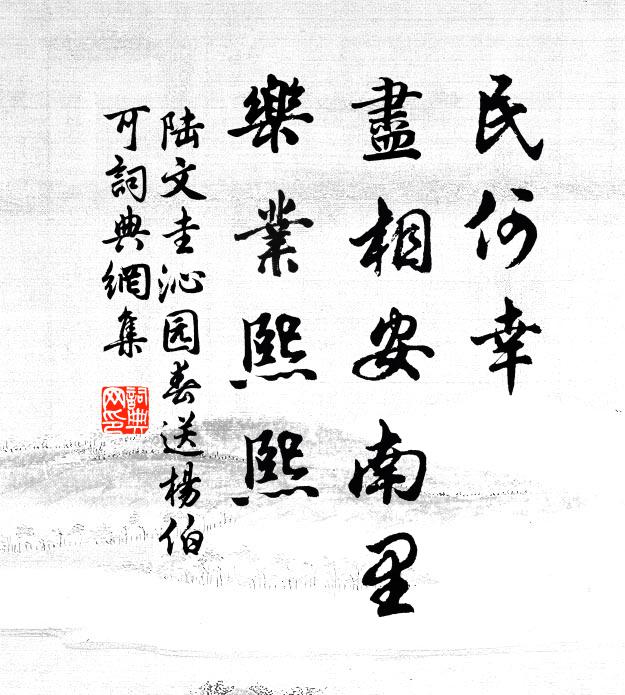 民何幸
盡相安南里
樂業熙熙
陆文圭沁园春送楊伯
可詞典網集
詞典
网印